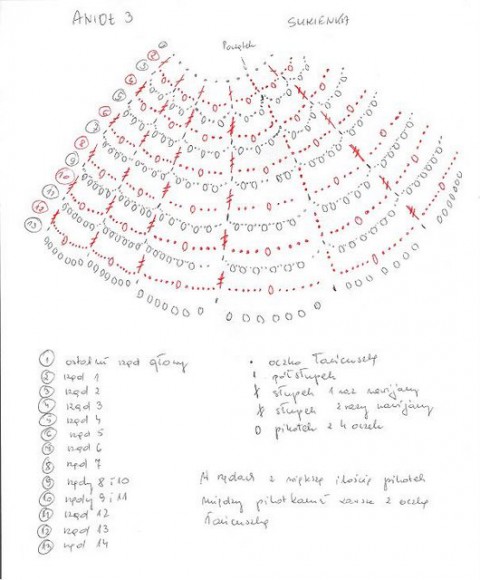 ANIOŁ 3 SUKIENKA
Początek
1
2
3
4
5
6
7
8
9
10
11
12
13
1 ostatni rząd głowy
2 rząd 1
3 rząd 2
4 rząd 3
5 rząd 4
6 rząd 5
7 rząd 6
8 rząd 7
9 rzędy 8 i 10
10 rzędy 9 i 11
11 rząd 12
12 rząd 13
13 rząd 14
• oczko łańcuszka
półsłupek
słupek 1 raz nawijany
słupek 2 razy nawijany
0 pikotek z 4 oczek
W rzędach z większą ilością pikotek
między pikotkami zawsze 2 oczka
łańcuszka